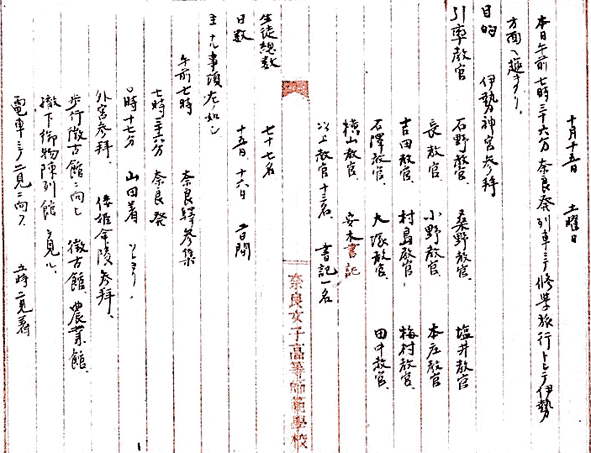 十月十五日　土曜日
本日午前七時三十六分奈良発列車ニテ修学旅行トシテ伊勢
方面ヘ趣ケリ、
目的　伊勢神宮参拝
引率教官　石野教官、　桑野教官、　塩井教官
長教官、　小野教官、　本庄教官
吉田教官、　村島教官、　梅村教官、
石澤教官、　大塚教官、　田中教官、
横山教官　安本書記
以上教官十三名、書記一名
奈良女子高等師範學校
生徒総数　七十七名
日数　十五日、十六日　二日間
主ナル事項左ノ如シ
午前七時　奈良驛参集
七時三十六分　奈良発
〇時十七分　山田着
外宮参拝、　倭姫命陵参拝、
歩行徴古館ニ向ヒ　徴古館、農業館、
撤下御物陳列館ヲ見ル、
電車ニテ二見ニ向フ　五時二見着